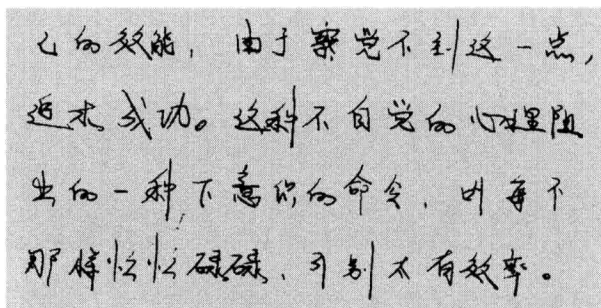 己的效能，由于察觉不到这一点，
追求成功。这种不自觉的心理阻
出的一种下意识的命令，叫每不
那样忙忙碌碌，可别太有效率。